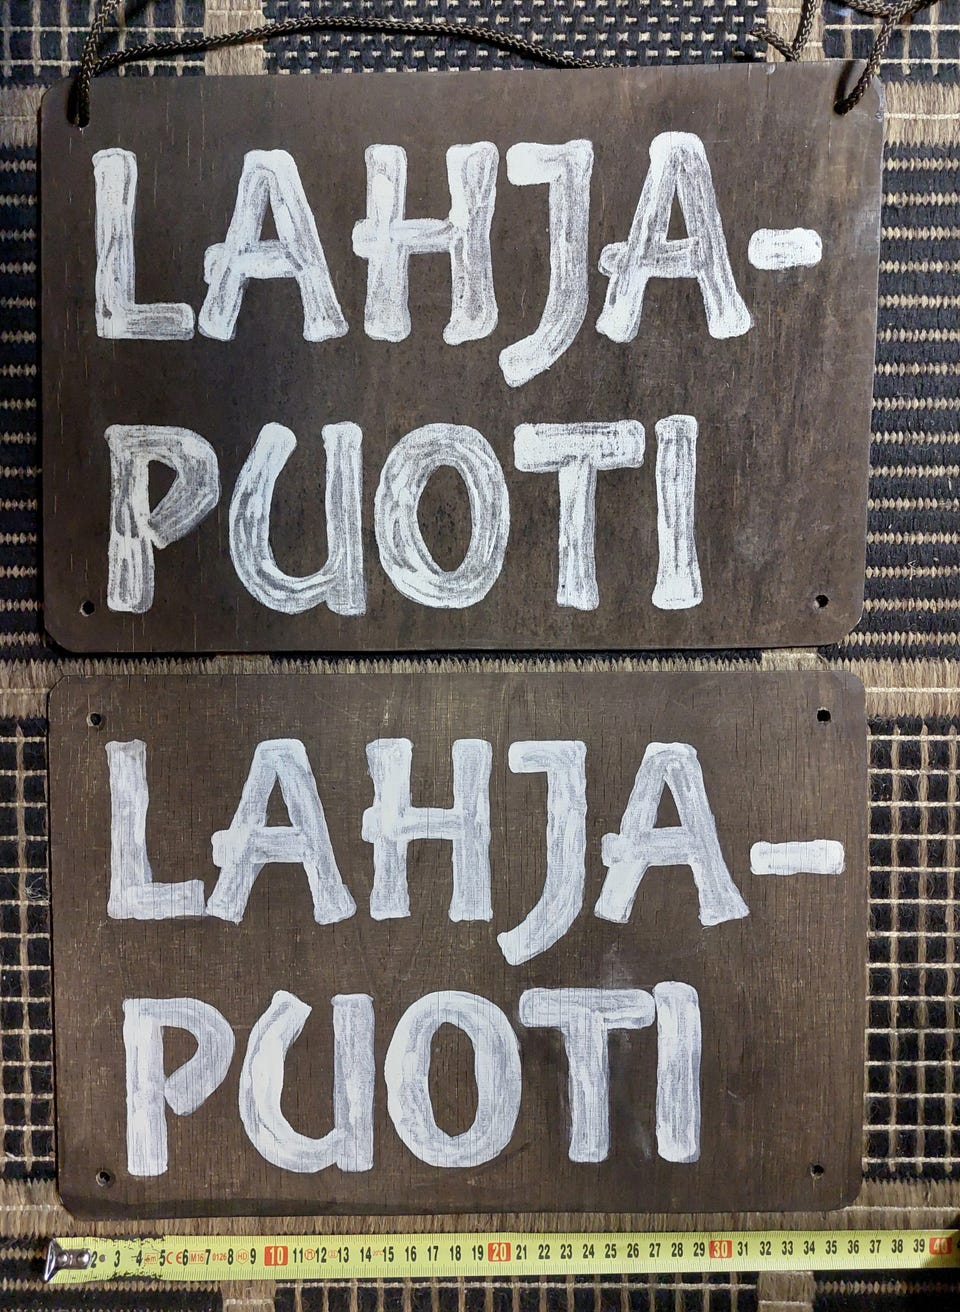 LAHJA-
PUOTI
LAHJA-
PUOTI
2 3 4 5 6 7 8 9 10 11 12 13 14 15 16 17 18 19 20 21 22 23 24 25 26 27 28 29 30 31 32 33 34 35 36 37 38 39 40